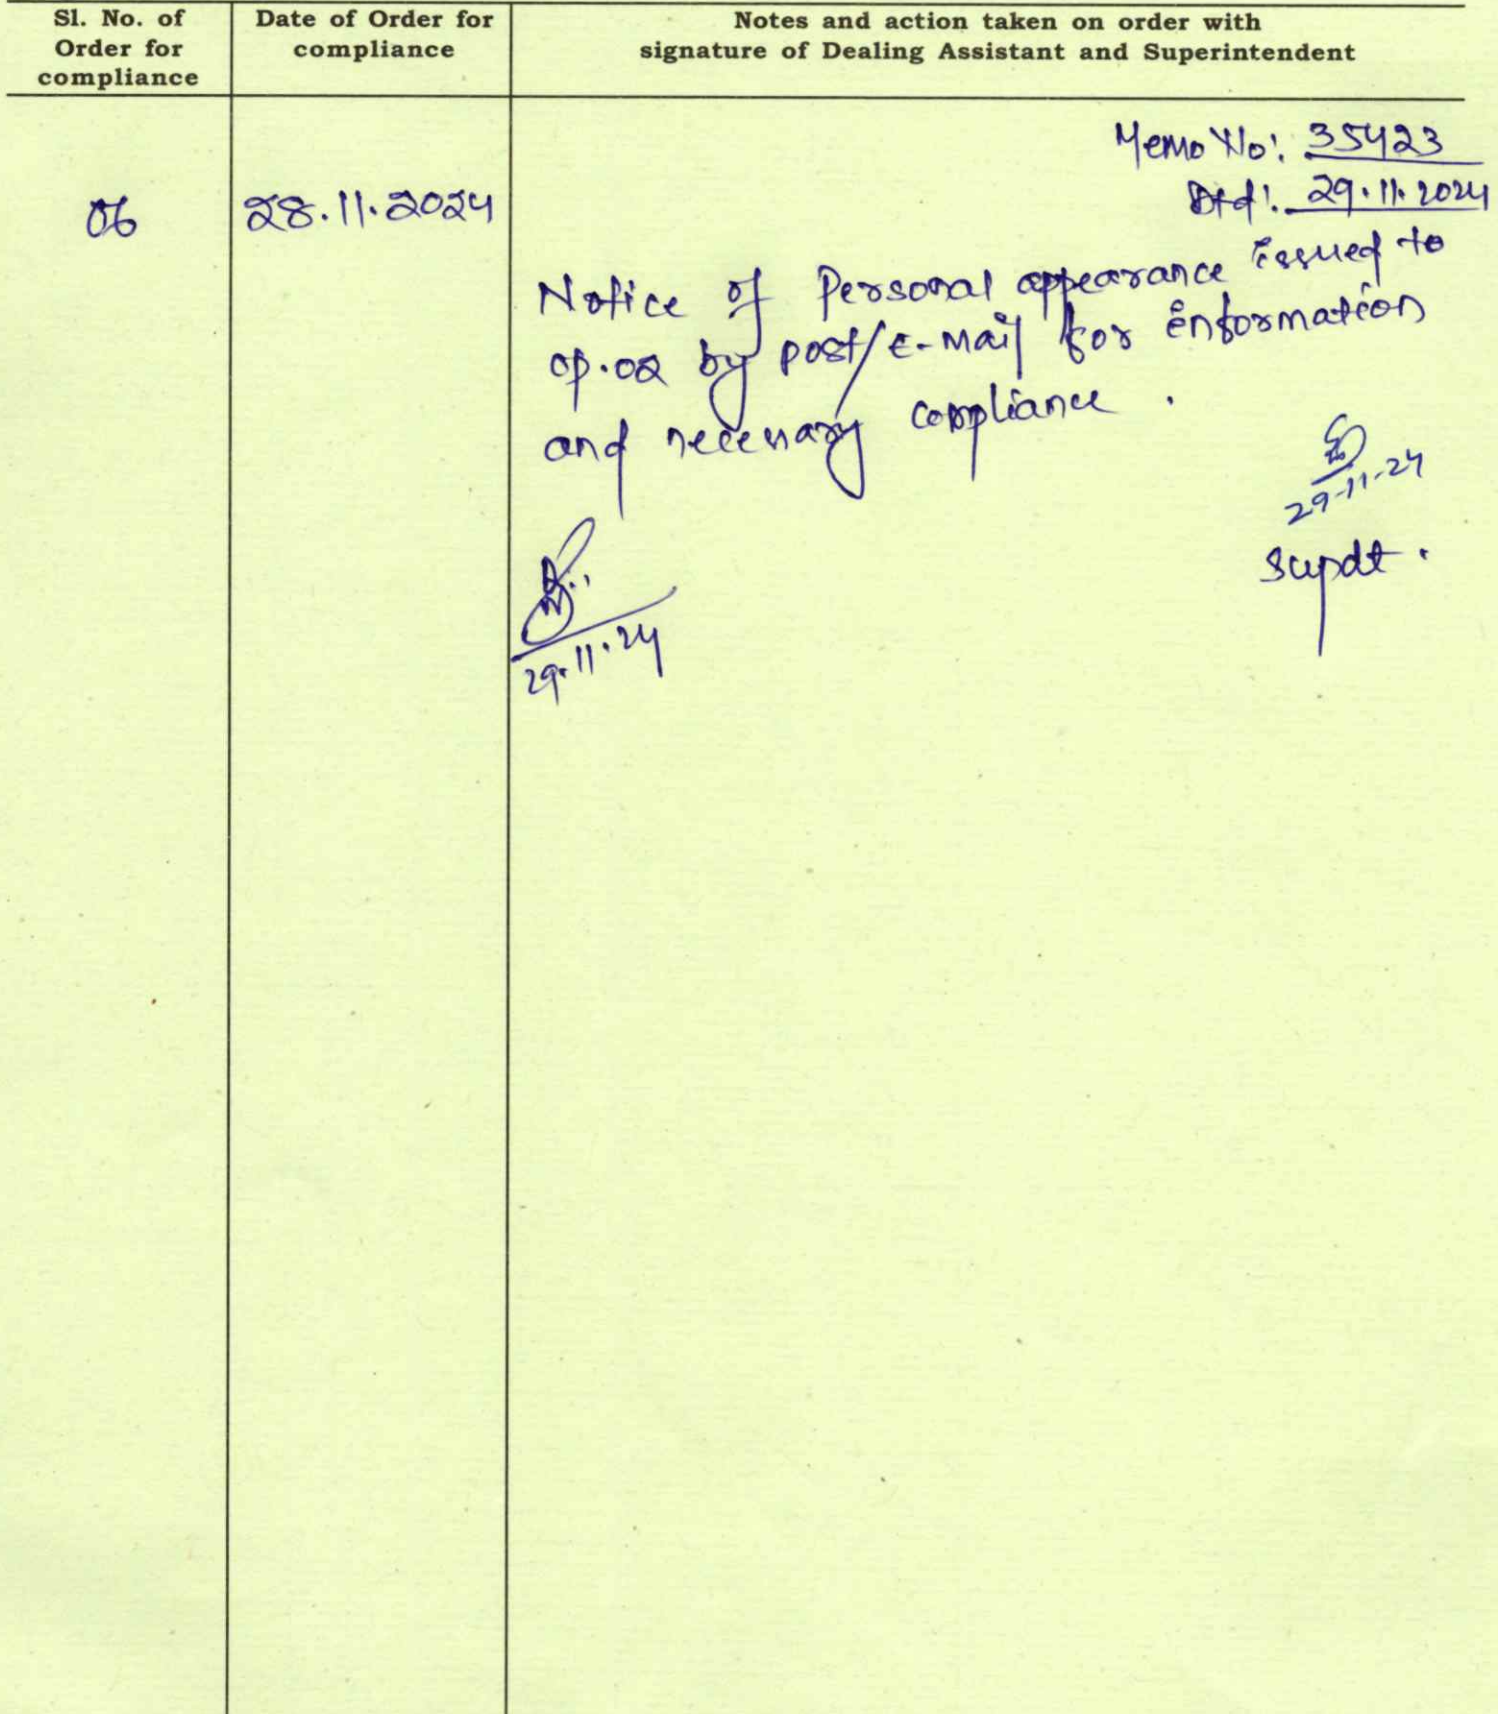 Sl. No. of
Order for
compliance
Date of Order for
compliance
Notes and action taken on order with
signature of Dealing Assistant and Superintendent
Memo No: 35423
Dtd: 29.11.2024
06
28.11.2024
Notice of Personal appearance issued to
op.02 by post/E-Mail for information
and necessary compliance.
29-11-24
Supdt.
29.11.24